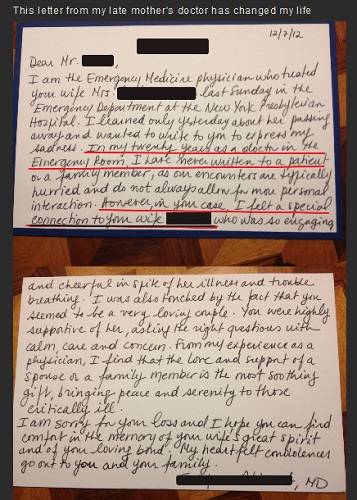 This letter from my late mother's doctor has changed my life
12/7/12
Dear Mr.
I am the Emergency Medicine physician who treated
your wife Mrs. last Sunday in the
Emergency Department at the New York Presbyterian
Hospital. I learned only yesterday about her passing
away and wanted to write to you to express my
sadness. In my twenty years as a doctor in the
Emergency Room, I have never written to a patient
or a family member, as our encounters are typically
hurried and do not always allow for more personal
interaction. However, in your case, I felt a special
connection to your wife who was so engaging
and cheerful in spite of her illness and trouble
breathing. I was also touched by the fact that you
seemed to be a very loving couple. You were highly
supportive of her, asking the right questions with
calm, care and concern. From my experience as a
physician, I find that the love and support of a
spouse or a family member is the most soothing
gift, bringing peace and serenity to those
critically ill.
I am sorry for your loss and I hope you can find
comfort in the memory of your wife's great spirit
and of your loving bond. My heartfelt condolences
go out to you and your family.
MD